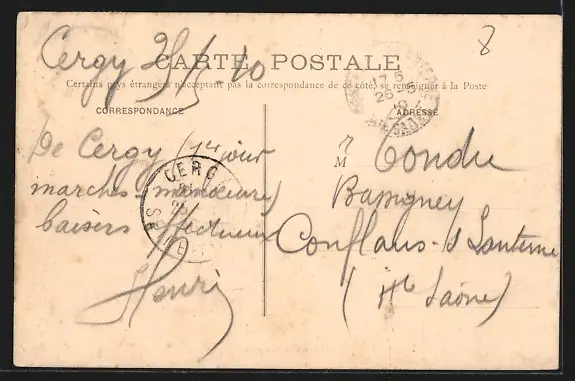 8
Cergy
CARTE POSTALE
Certains pays étrangers n'acceptent pas la correspondance de ce côté, se renseigner à la Poste
CORRESPONDANCE
ADRESSE
De Cergy (1er jour
marches manœuvre)
baisers affectueux
Henri
CERG
M Tondu
Conflans s Lanterne
(Hte Saône)